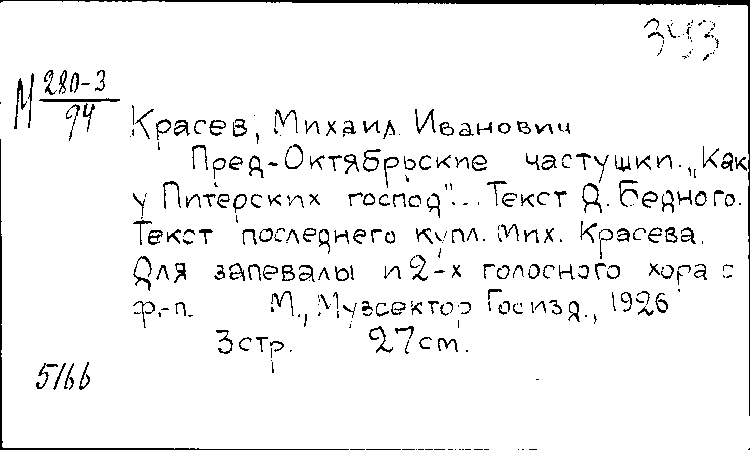 393
М 280-3
94
Красев, Михаил Иванович
Пред-Октябрьские частушки. „Как
у Питерских господ"... Текст Д. Бедного.
Текст последнего купл. Мих. Красева.
Для запевалы и 2-х голосного хора с
ф.-п. М., Музсектор Госизд., 1926
3 стр. 27 cm.
5166